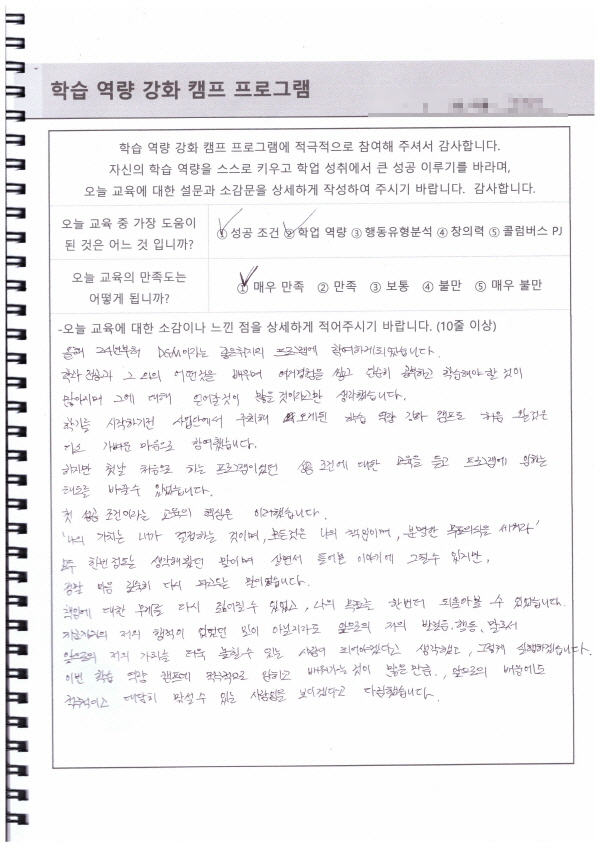 학습 역량 강화 캠프 프로그램
학습 역량 강화 캠프 프로그램에 적극적으로 참여해 주셔서 감사합니다.
자신의 학습 역량을 스스로 키우고 학업 성취에서 큰 성공 이루기를 바라며,
오늘 교육에 대한 설문과 소감문을 상세하게 작성하여 주시기 바랍니다. 감사합니다.
오늘 교육 중 가장 도움이
된 것은 어느 것 입니까?
① 성공 조건 ② 학업 역량 ③ 행동유형분석 ④ 창의력 ⑤ 콜럼버스 PJ
오늘 교육의 만족도는
어떻게 됩니까?
① 매우 만족 ② 만족 ③ 보통 ④ 불만 ⑤ 매우 불만
-오늘 교육에 대한 소감이나 느낀 점을 상세하게 적어주시기 바랍니다. (10줄 이상)
올해 24년부터 DGM이라는 좋은취지의 프로그램에 참여하게되었습니다.
학과 전공과 그 외의 어떤것을 배우며 단순히 하고 학습해야 할 것이
많아지며 그에 대해 얻어갈것이 많을 것이라고만 생각했습니다.
학기를 시작하기전 사업단에서 주최해 오게된 학습 역량 강화 캠프도 처음 왔을땐
가벼운 마음으로 참여했습니다.
하지만 첫날 처음으로 하는 프로그램이었던 성공 조건에 대한 교육을 듣고 프로그램에 임하는
태도를 바꿀수 있었습니다.
첫 성공 조건이라는 교육의 핵심은 이러했습니다.
'나의 가치는 내가 결정하는 것이며, 모든것은 나의 책임이며, 분명한 목표의식을 세켜라'
모두 한번정도는 생각해봤던 말이며 살면서 들어본 이야기에 그칠수 있지만,
정말 마음 깊숙히 다시 새겨듣는 말이었습니다.
책임에 대한 무게를 다시 짊어질수 있었고, 나의 목표를 한번더 되돌아볼 수 있었습니다.
저의 행적이 있었던 것이 아닐지라도 앞으로의 저의 반응, 행동, 말로서
앞으로의 저의 가치를 더욱 높힐수 있는 사람이 되어야겠다고 생각했고, 그렇게 실행하겠습니다.
이번 학습 역량 캠프에 적극적으로 임하고 배워가는것이 많은 만큼, 앞으로의 배움에도
적극적이고 대담히 맞설 수 있는 사람임을 보이겠다고 다짐했습니다.